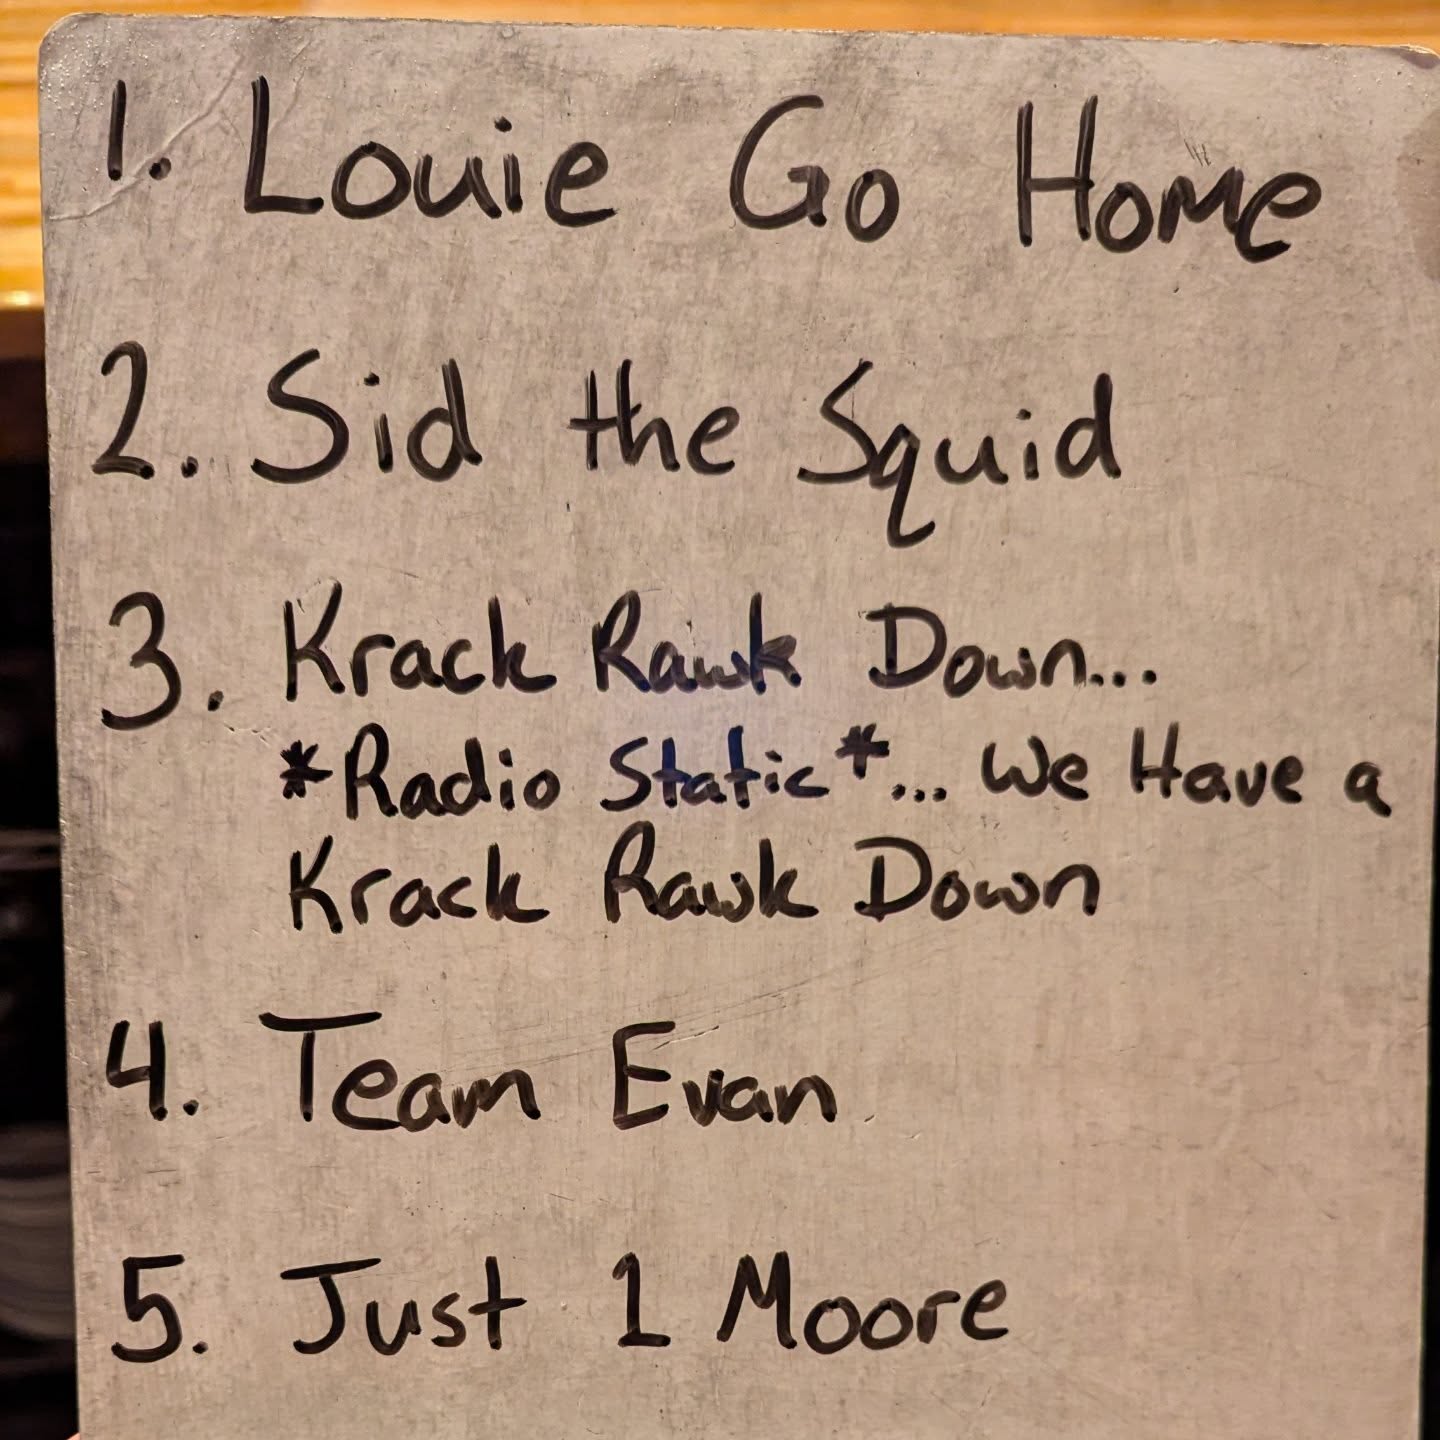 1. Louie Go Home
2. Sid the Squid
3. Krack Rawk Down...
*Radio Static*... We Have a
Krack Rawk Down
4. Team Evan
5. Just 1 Moore